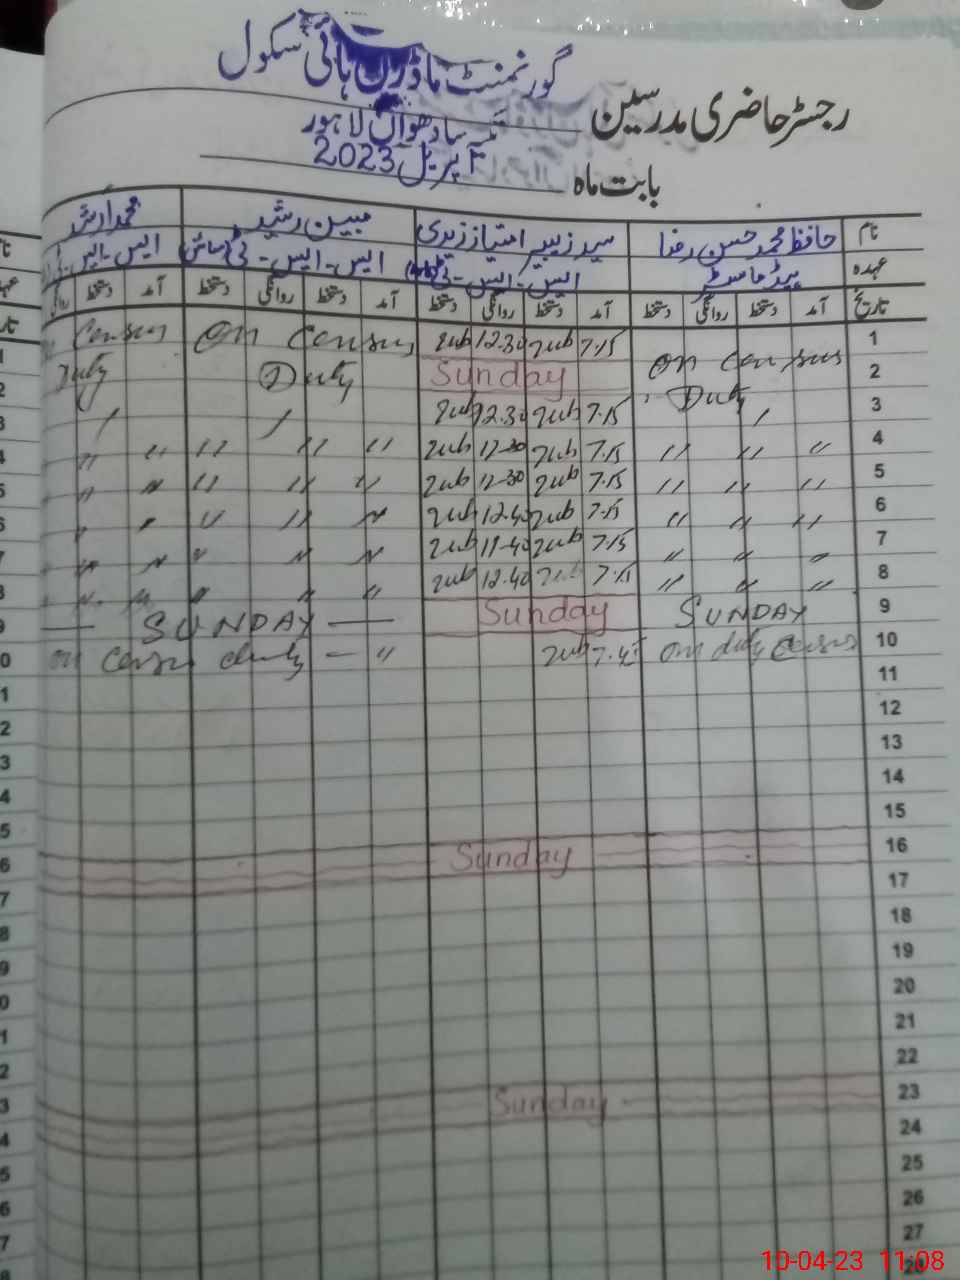 گورنمنٹ ماڈرن ہائی سکول
رجسٹر حاضری مدرسین
سادھواں لاہور
بابت ماہ اپریل 2023
نام حافظ محمد حسن رضا سید زبیر امتیاز زیدی مبین رشید محمد ارشد
عہدہ ہیڈ ماسٹر ایس۔ایس۔ٹی ایس۔ایس۔ٹی (سائنس) ایس۔ایس۔ٹی
تاریخ آمد دستخط روانگی دستخط آمد دستخط روانگی دستخط آمد دستخط روانگی دستخط آمد دستخط روانگی
Census On Census Zub 12.30 Zub 7.15 1
Duty Duty Sunday On Census 2
Zub 12.30 Zub 7.15 Duty 3
" " " " " Zub 12-30 Zub 7.15 " " " 4
" " " " " Zub 12-30 Zub 7.15 " " " 5
" " " " " Zub 12.40 Zub 7.15 " " " 6
" " " " " Zub 11-40 Zub 7.15 " " " 7
" " " " " Zub 12.40 Zub 7.15 " " " 8
— SUNDAY — Sunday SUNDAY 9
on Census duty — " Zub 7.45 on duty Census 10
11
12
13
14
15
Sunday 16
17
18
19
20
21
22
Sunday 23
24
25
26
27
28
10-04-23 11:08